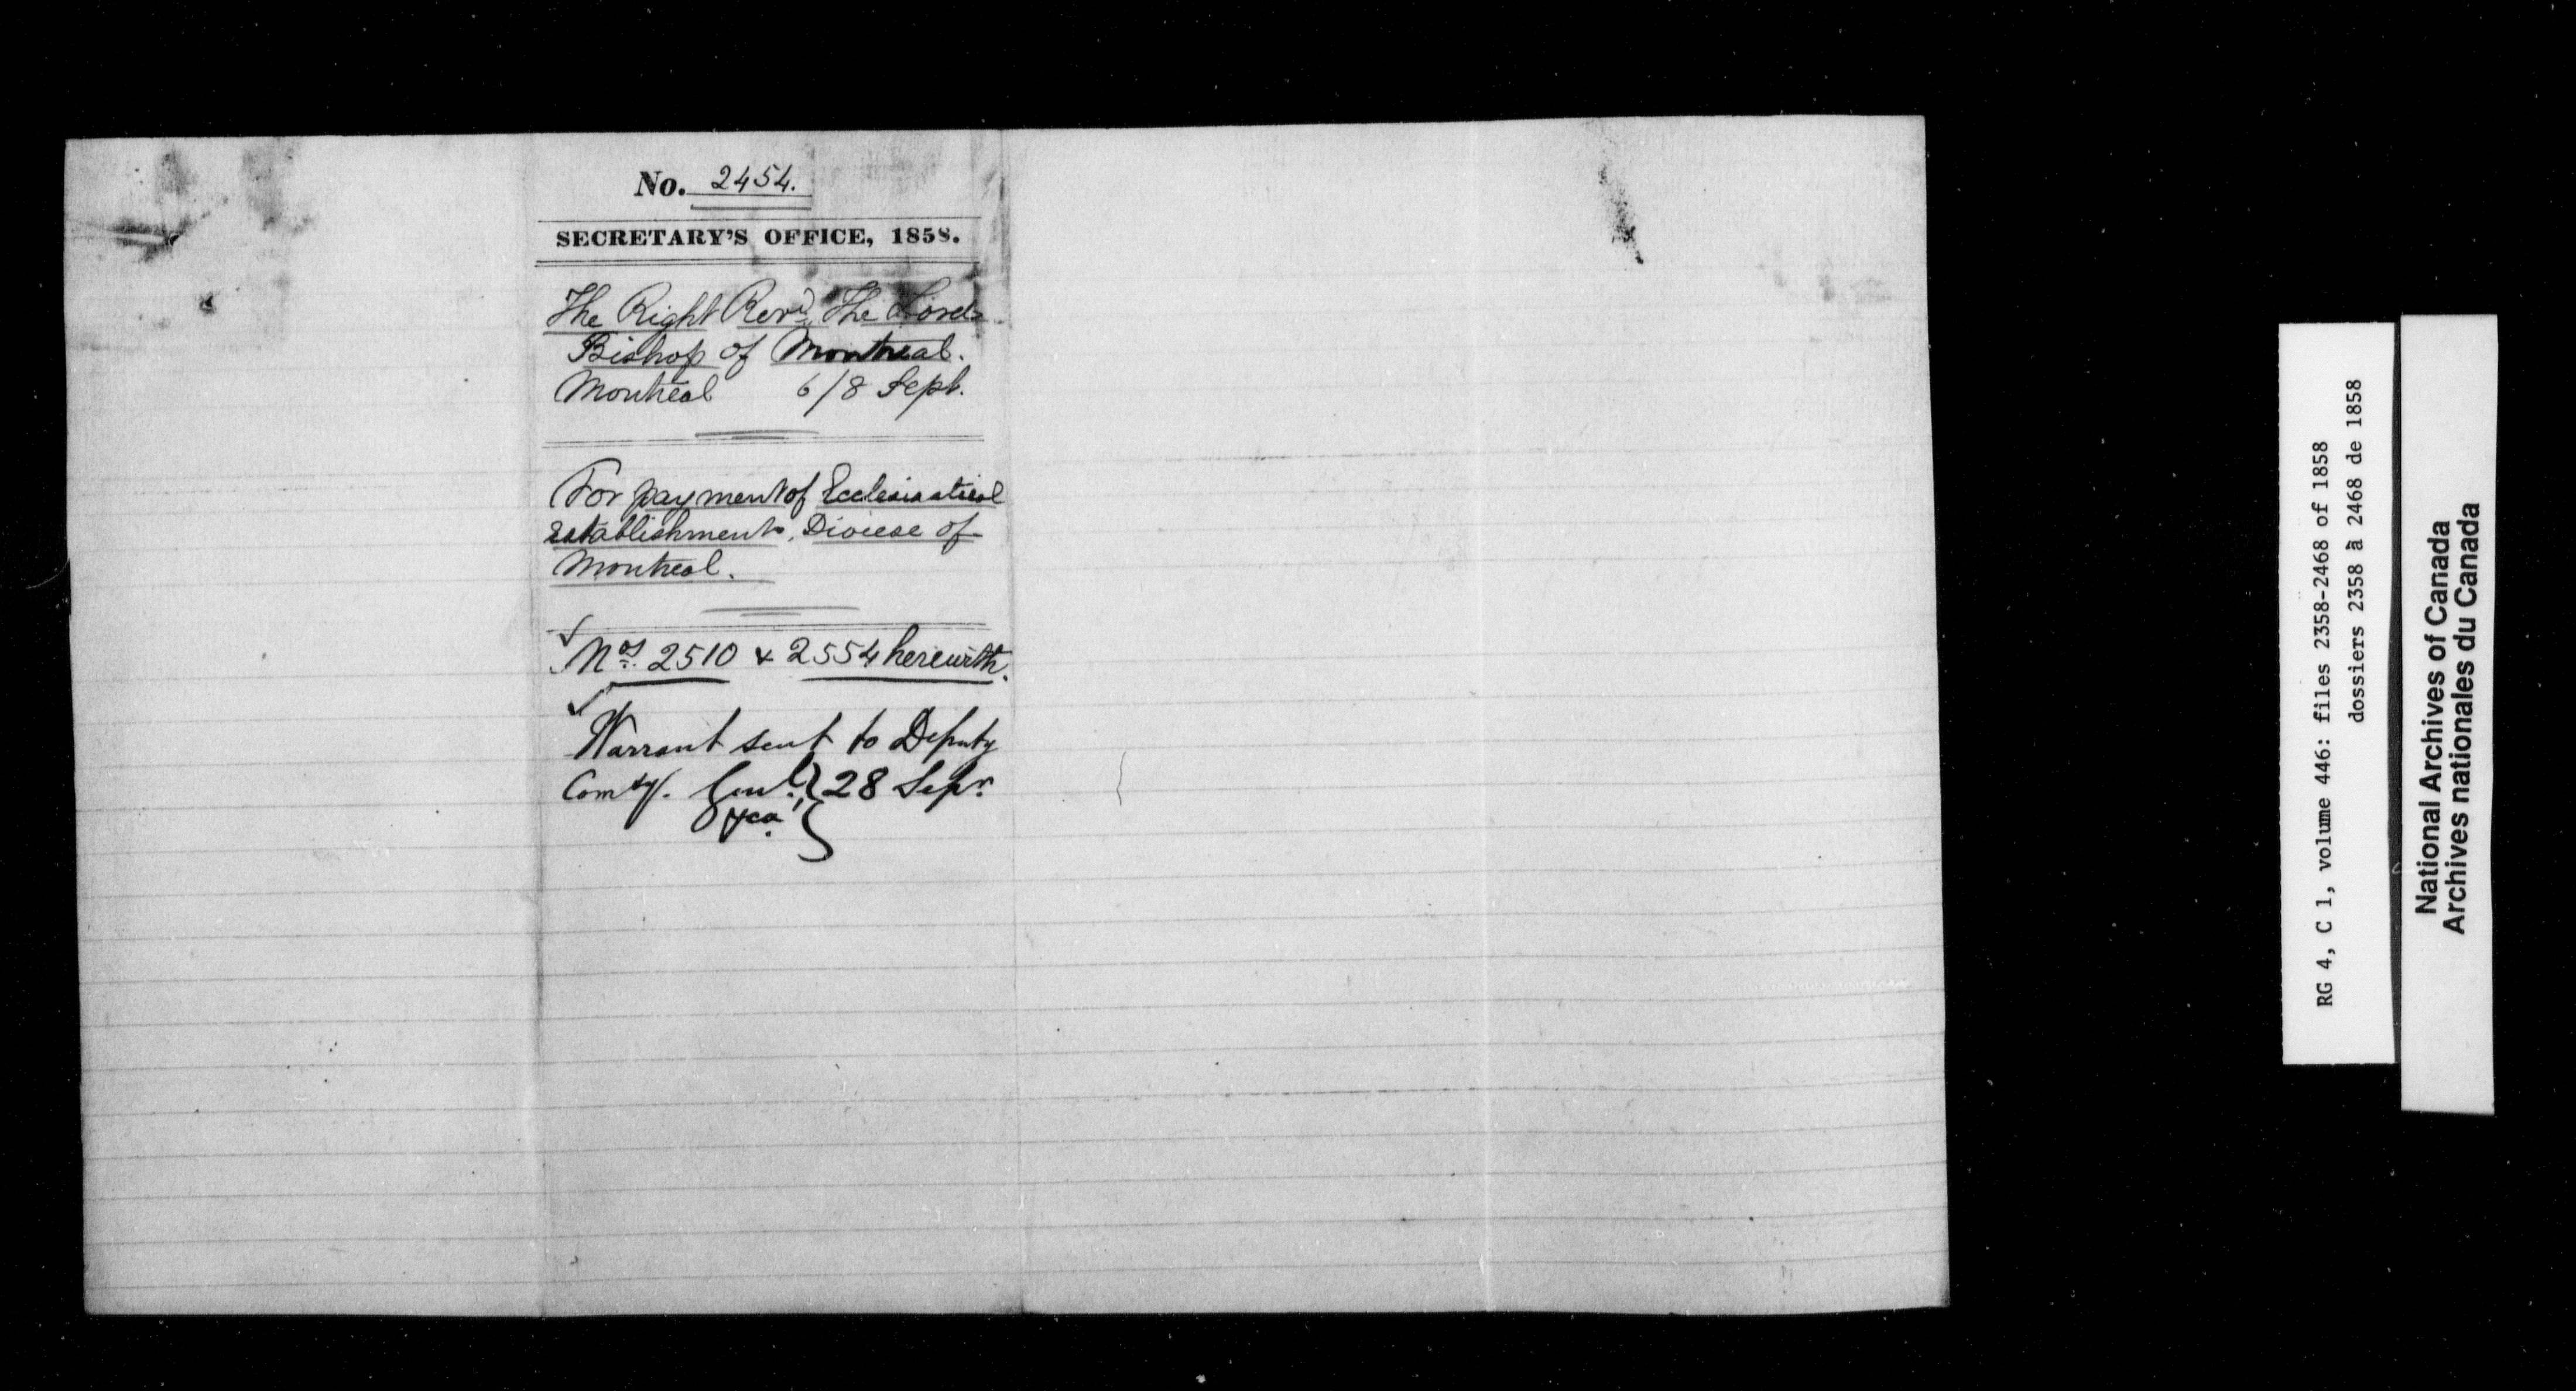 No. 2454.
SECRETARY'S OFFICE, 1858.
The Right Revd. The Lord
Bishop of Montreal.
Montreal 6/8 Sept.
For payment of Ecclesiastical
establishment, Diocese of
Montreal.
Nos. 2510 & 2554 herewith.
Warrant sent to Deputy
Comsy. Genl. 28 Sepr.
RG 4, C 1, volume 446: files 2358-2468 of 1858
dossiers 2358 à 2468 de 1858
National Archives of Canada
Archives nationales du Canada